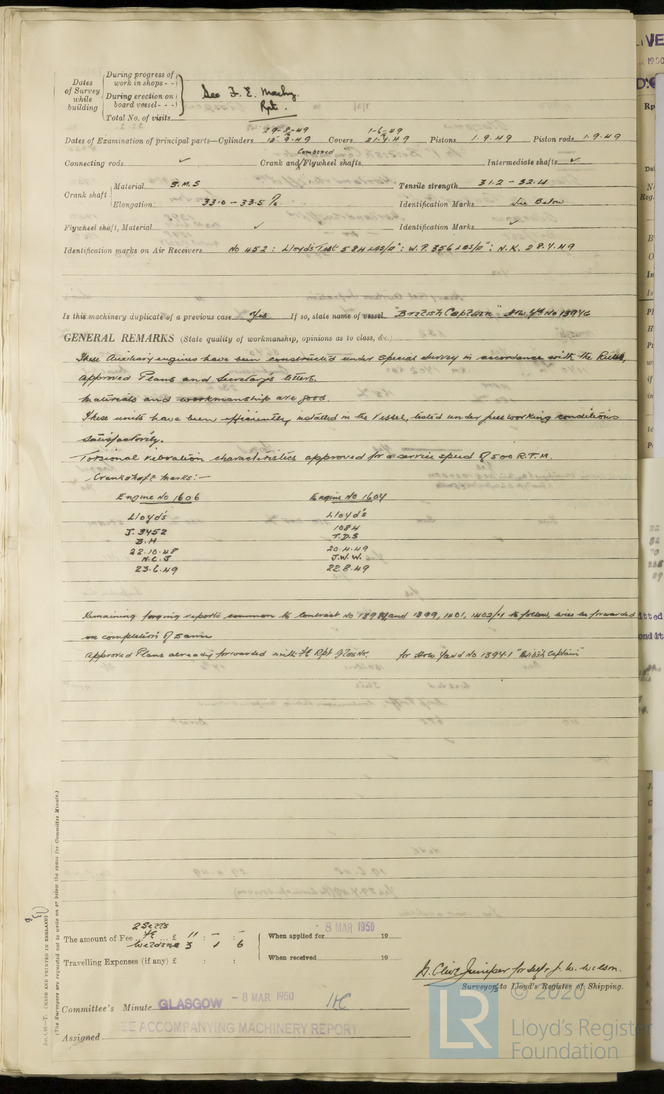 Dates of Survey while building
During progress of work in shops - -
During erection on board vessel - - -
Total No. of visits
See F. E. Machy. Rpt.
29-8-49 1-6-49
Dates of Examination of principal parts—Cylinders 12.9.49 Covers 21.9.49 Pistons 1.9.49 Piston rods 1.9.49
Connecting rods ✓ Crank and Combined Flywheel shafts Intermediate shafts ✓
Crank shaft
Material S.M.S Tensile strength 31.2 – 32.4
Elongation 33.0 – 33.5 % Identification Marks See Below
Flywheel shaft, Material ✓ Identification Marks ✓
Identification marks on Air Receivers No 452 : Lloyd's Test 584 Lbs/□" : W.P. 356 Lbs/□" : N.K. 28.4.49
Is this machinery duplicate of a previous case Yes If so, state name of vessel "British Captain"
GENERAL REMARKS (State quality of workmanship, opinions as to class, &c.)
These Auxiliary engines have been constructed under Special Survey in accordance with the Rules,
Approved Plans and Secretary's letters.
Materials and workmanship are good.
These units have been efficiently installed in the Vessel, tested under full working conditions
satisfactorily.
Torsional vibration characteristics approved for a service speed of 500 R.P.M.
Crankshaft Marks:-
Engine No 1606 Engine No 1604
Lloyd's Lloyd's
J. 3452 1084
B.H T.D.S
22.10.48 20.4.49
N.C.J J.W.W.
23.6.49 22.8.49
Remaining forging reports common to contract No and 1399, 1401, to follow, will be forwarded
on completion of same
Approved Plans already forwarded with for Yard No 1394 "British Captain"
The amount of Fee 2 Sets £ 11 : - : -
Welding 3 1 6
Travelling Expenses (if any) £ : :
When applied for 8 MAR 1950 19
When received 19
G. Clive Juniper for self & J. W. Wilson.
Surveyors to Lloyd's Register of Shipping.
Committee's Minute GLASGOW - 8 MAR 1950
Assigned SEE ACCOMPANYING MACHINERY REPORT
(MADE AND PRINTED IN ENGLAND)
(The Surveyors are requested not to write on or below the space for Committee Minute.)
LR
© 2020
Lloyd's Register
Foundation